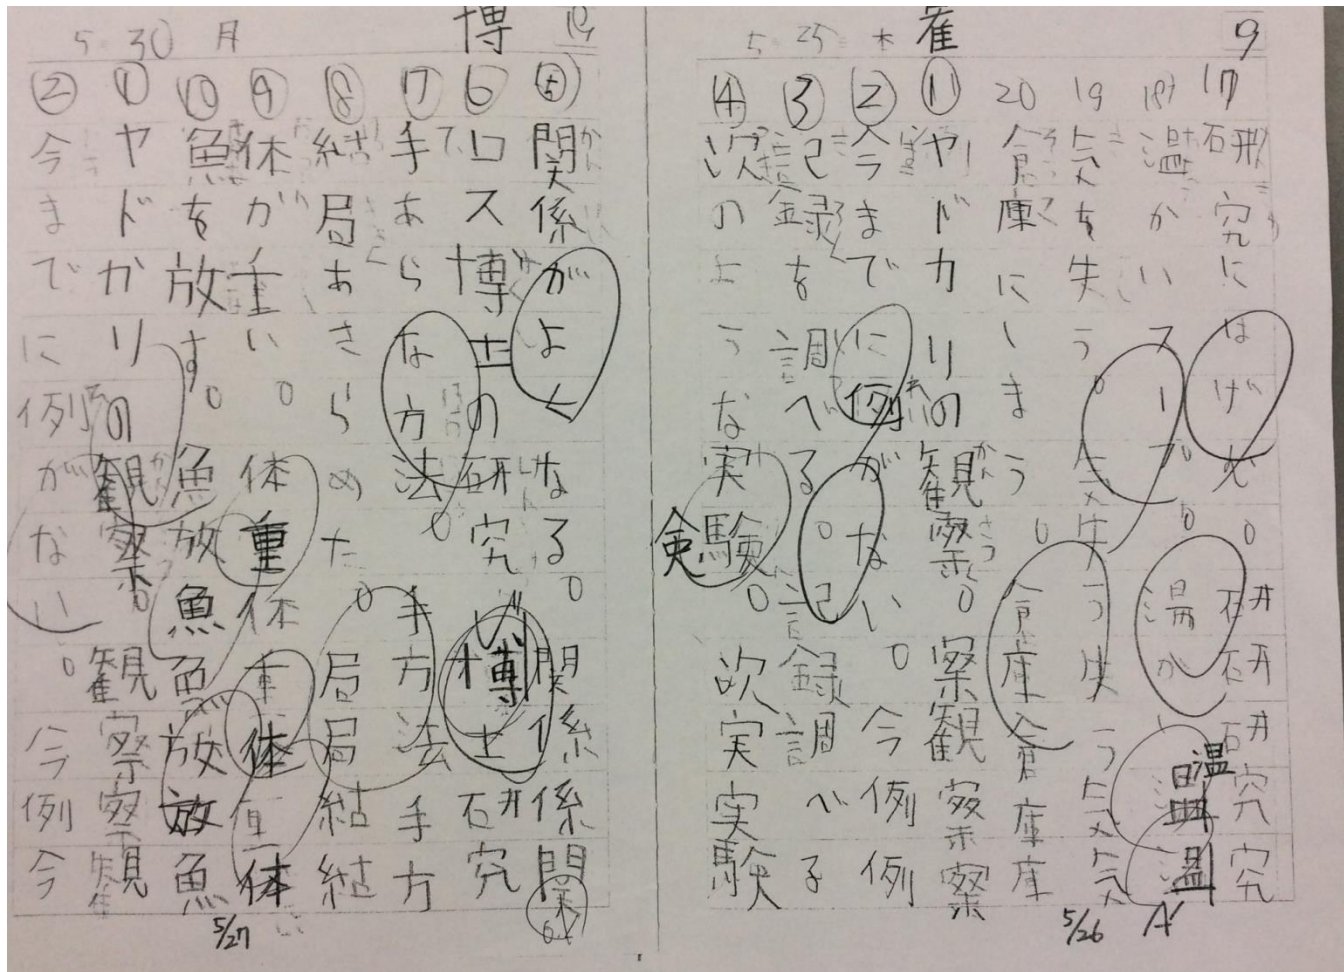 9
雀
5 25 木
17 研究にはげむ。研研研究究
18 温かいスープ。湯か温
19 気を失う。気失う失う気気
20 倉庫にしまう。倉庫倉庫庫
① ヤドカリの観察。察観察察
② 今までに例がない。今例例
③ 記録を調べる。記録調べる
④ 次のような実験。次実実験
験
5/26
A'
博
5 30 月
⑤ 関係がよくなる。関係係関
⑥ ロス博士の研究。博士研究
⑦ 手あらな方法。手方法手方
⑧ 結局あきらめた。局局結結
⑨ 体が重い。体重体重体重体
⑩ 魚を放す。魚放魚魚放放魚
① ヤドカリの観察。観察察観
② 今までに例がない。今例今
5/27